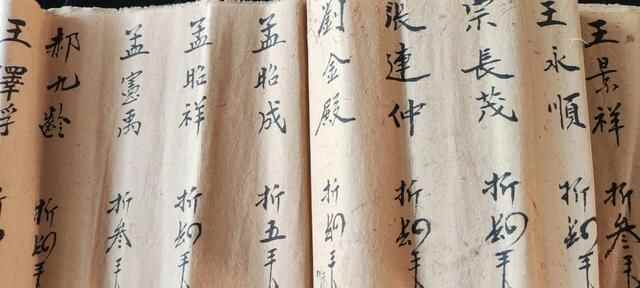 王景祥 折叁千
王永順 折千
宗長茂 折千
張連仲 折千
劉金殿 折千
孟昭成 折五千
孟昭祥 折千
孟憲禹 折叁千
郝九齡 折千
王澤 折